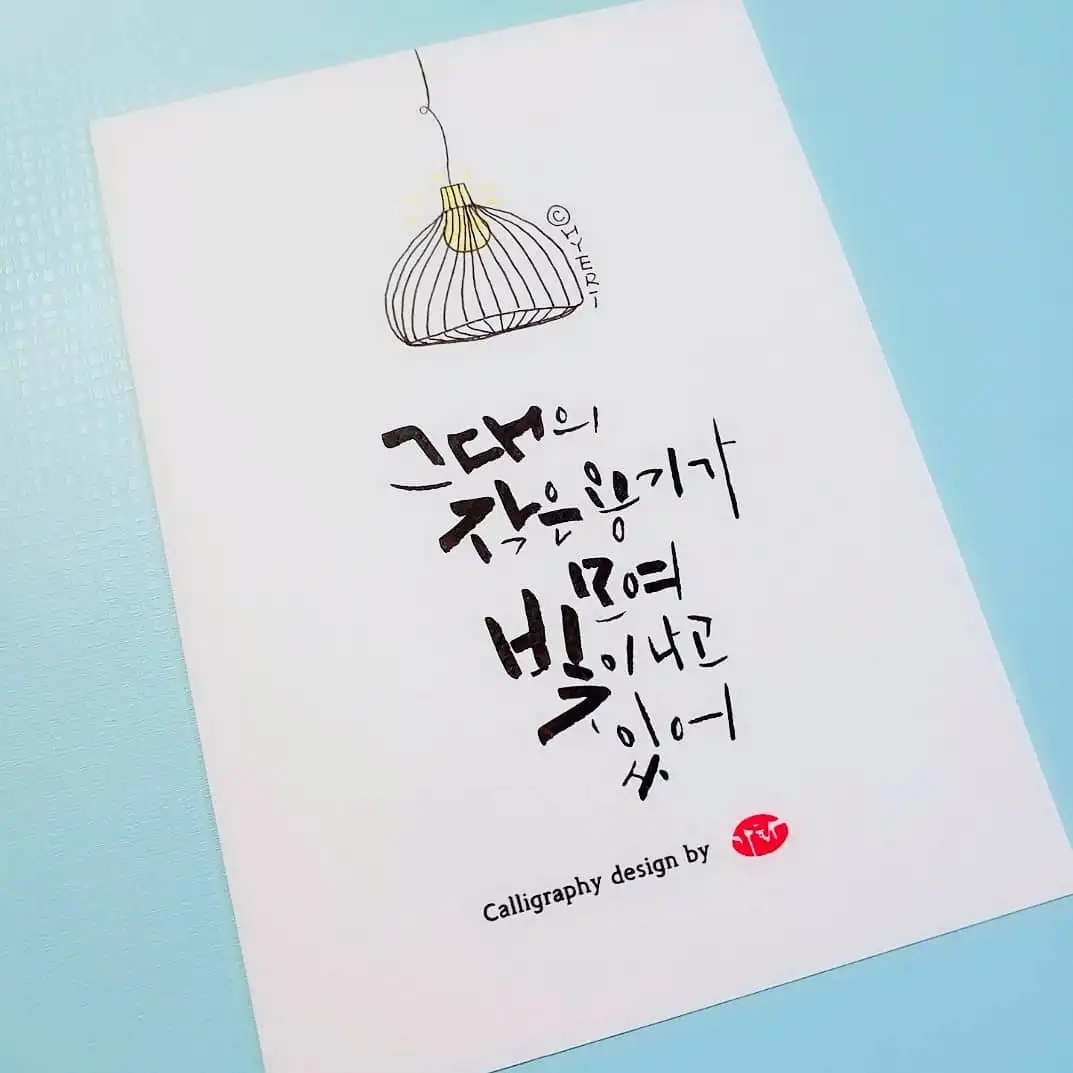 ©IYERI
그대의
작은용기가
모여
빛이나고
있어
Calligraphy design by